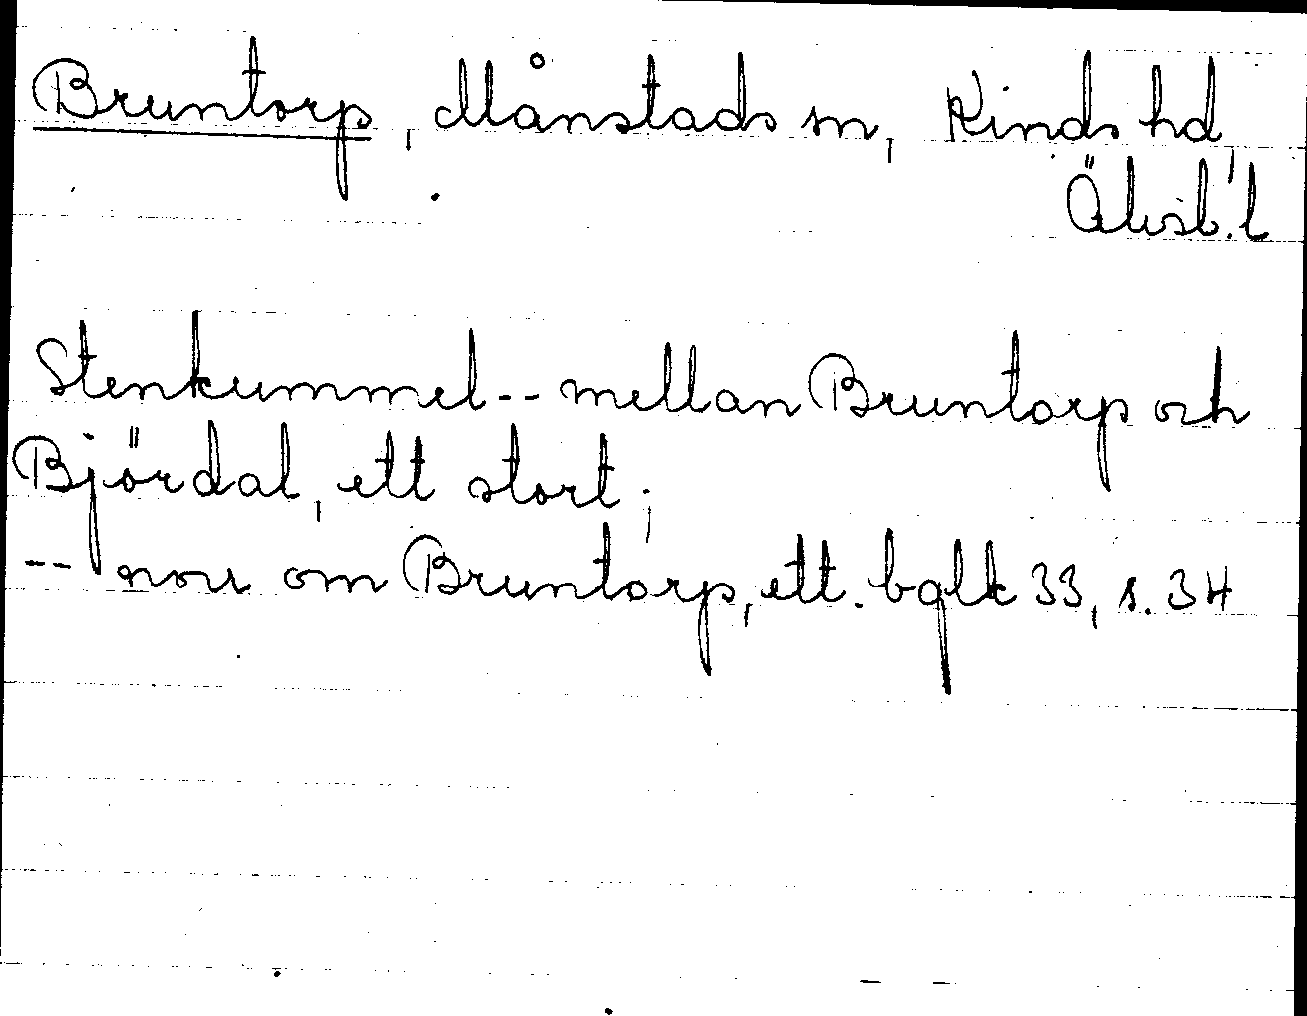 Bruntorp, Månstads sn, Kinds hd,
Älvsb. l
Stenkummel -- mellan Bruntorp och
Björdal, ett stort;
-- norr om Bruntorp, ett. bglk 33, s. 34